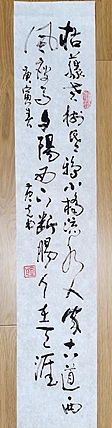 枯藤老樹昏鴉小橋流水人家古道西
風瘦馬夕陽西下斷腸人在天涯
庚寅春